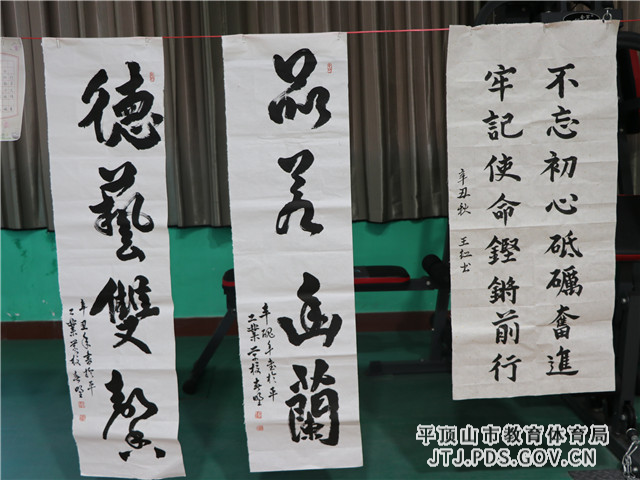 德藝雙馨
品若幽蘭
不忘初心砥礪奮進
牢記使命鏗鏘前行
辛丑秋 王仁
平顶山市教育体育局
JTJ.PDS.GOV.CN